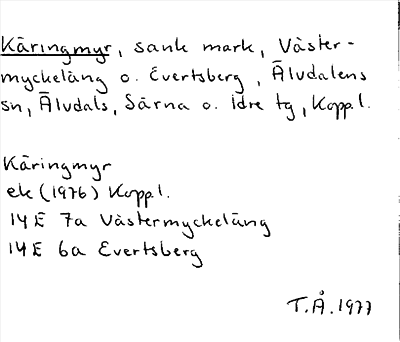 Käringmyr, sank mark, Väster-
myckeläng o. Evertsberg, Älvdalens
sn, Älvdals, Särna o. Idre tg, Koppl.
Käringmyr
ek (1976) Koppl.
14E 7a Västermyckeläng
14E 6a Evertsberg
T.Å. 1977